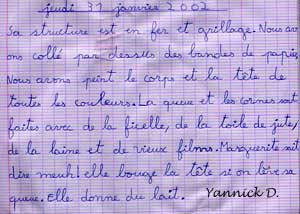 jeudi 31 janvier 2002
Sa structure est en fer et grillage. Nous av
ons collé par dessus des bandes de papier.
Nous avons peint le corps et la tête de
toutes les couleurs. La queue et les cornes sont
faites avec de la ficelle, de la toile de jute,
de la laine et de vieux films. Marguerite sait
dire meuh! elle bouge la tête si on lève sa
queue. Elle donne du lait.
Yannick D.